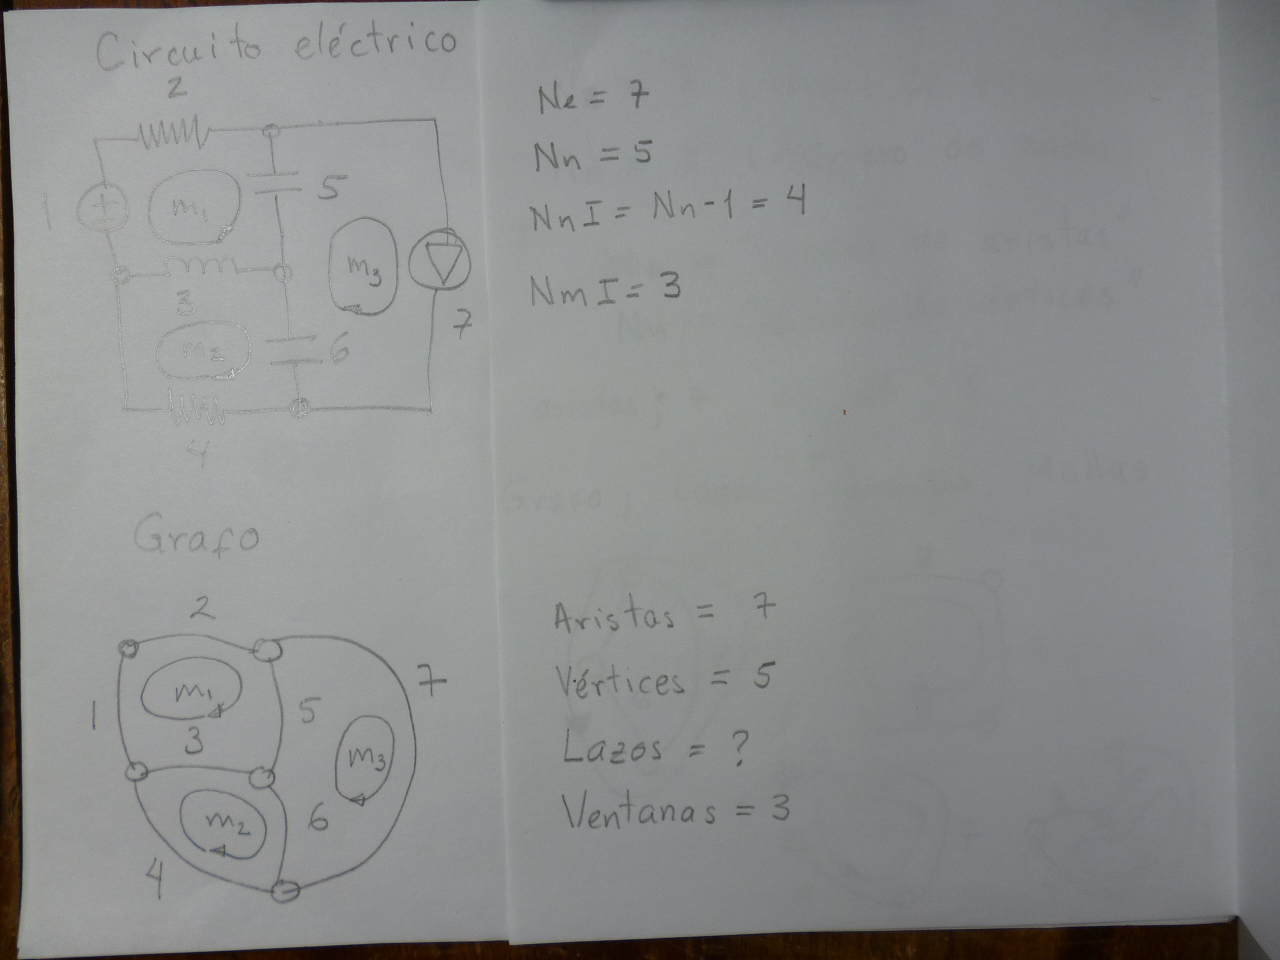 Circuito eléctrico
2
1
m1
5
m3
3
7
m2
6
4
Ne = 7
Nn = 5
NnI = Nn-1 = 4
NmI = 3
Grafo
2
m1
7
1
5
3
m3
m2
6
4
Aristas = 7
Vértices = 5
Lazos = ?
Ventanas = 3